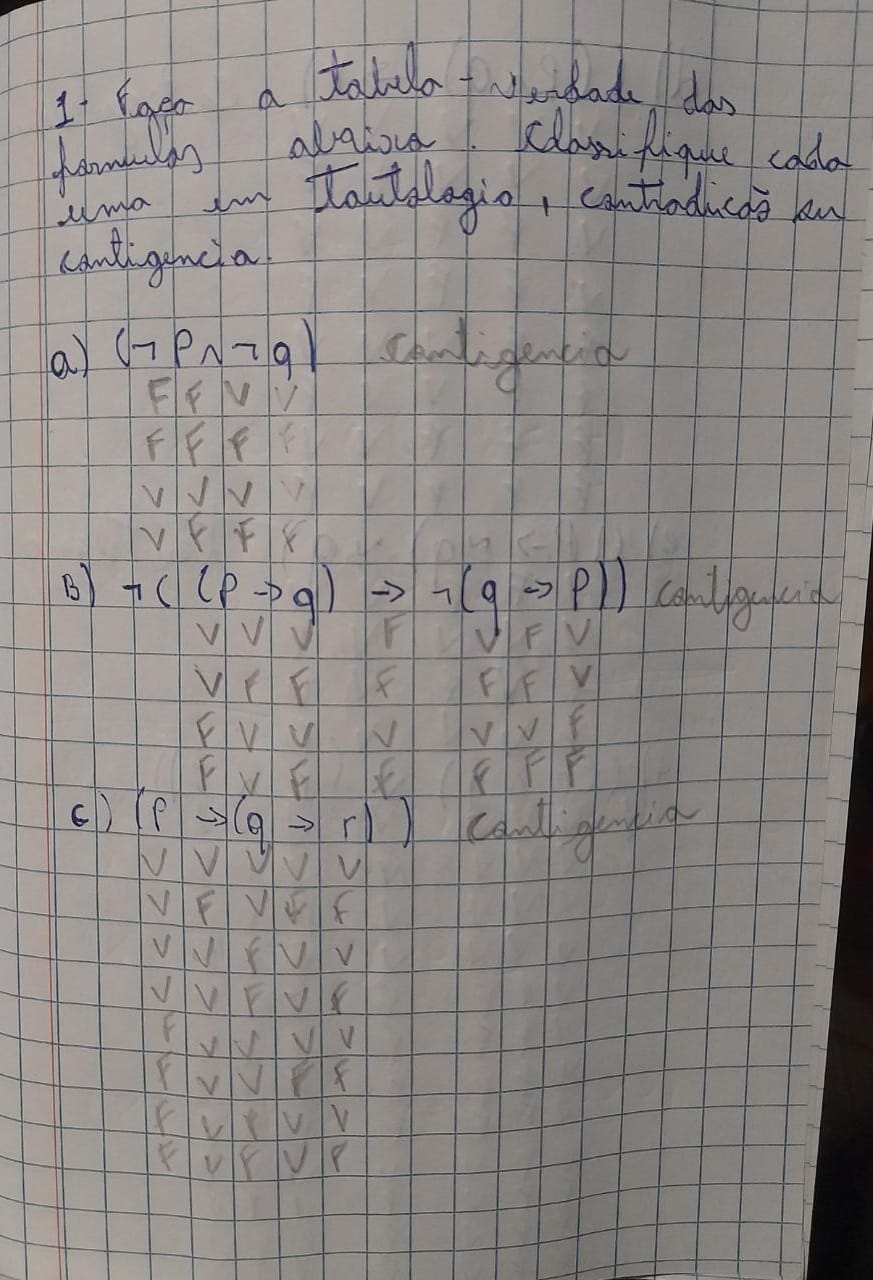 1- Faça a tabela-verdade das
formulas abaixo. Classifique cada
uma em Tautologia, contradicão ou
contigencia.
a) (¬P∧¬q) contigencia
F F V V
F F F F
V V V V
V F F F
B) ¬((P→q) → ¬(q→P)) contigencia
V V V F V F V
V F F F F F V
F V V V V V F
F V F F F F F
c) (P→(q→r)) contigencia
V V V V V
V F V F F
V V F V V
V V F V F
F V V V V
F V V F F
F V F V V
F V F V F